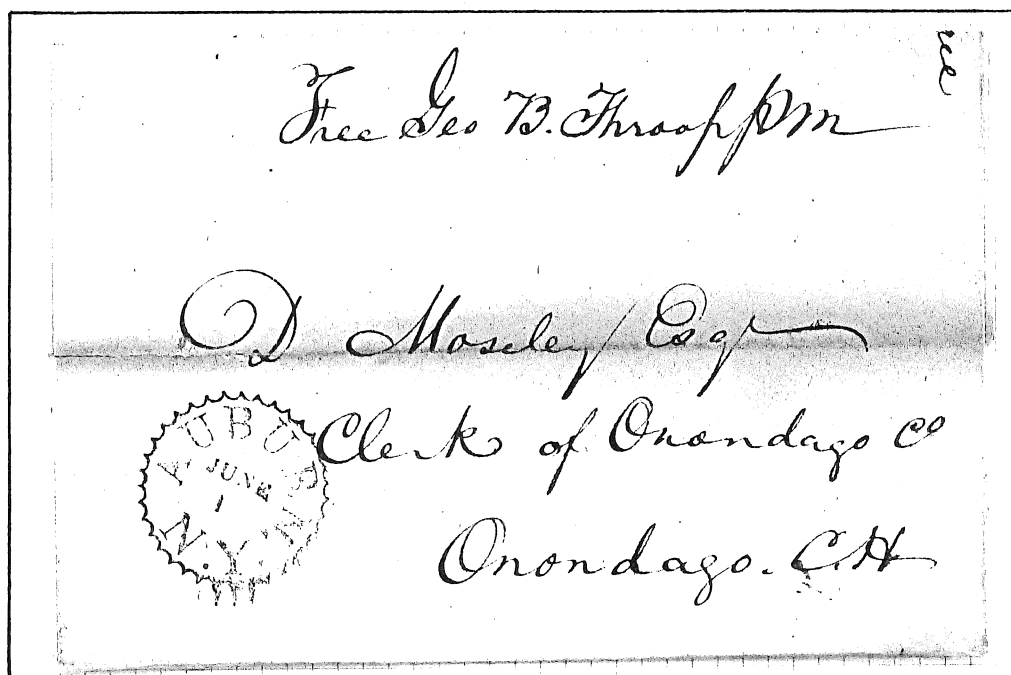 Free Geo B. Throop PM
D Moseley Esqr
Clerk of Onondago co
Onondago. C.H
AUBURN
JUNE
1
N.Y.